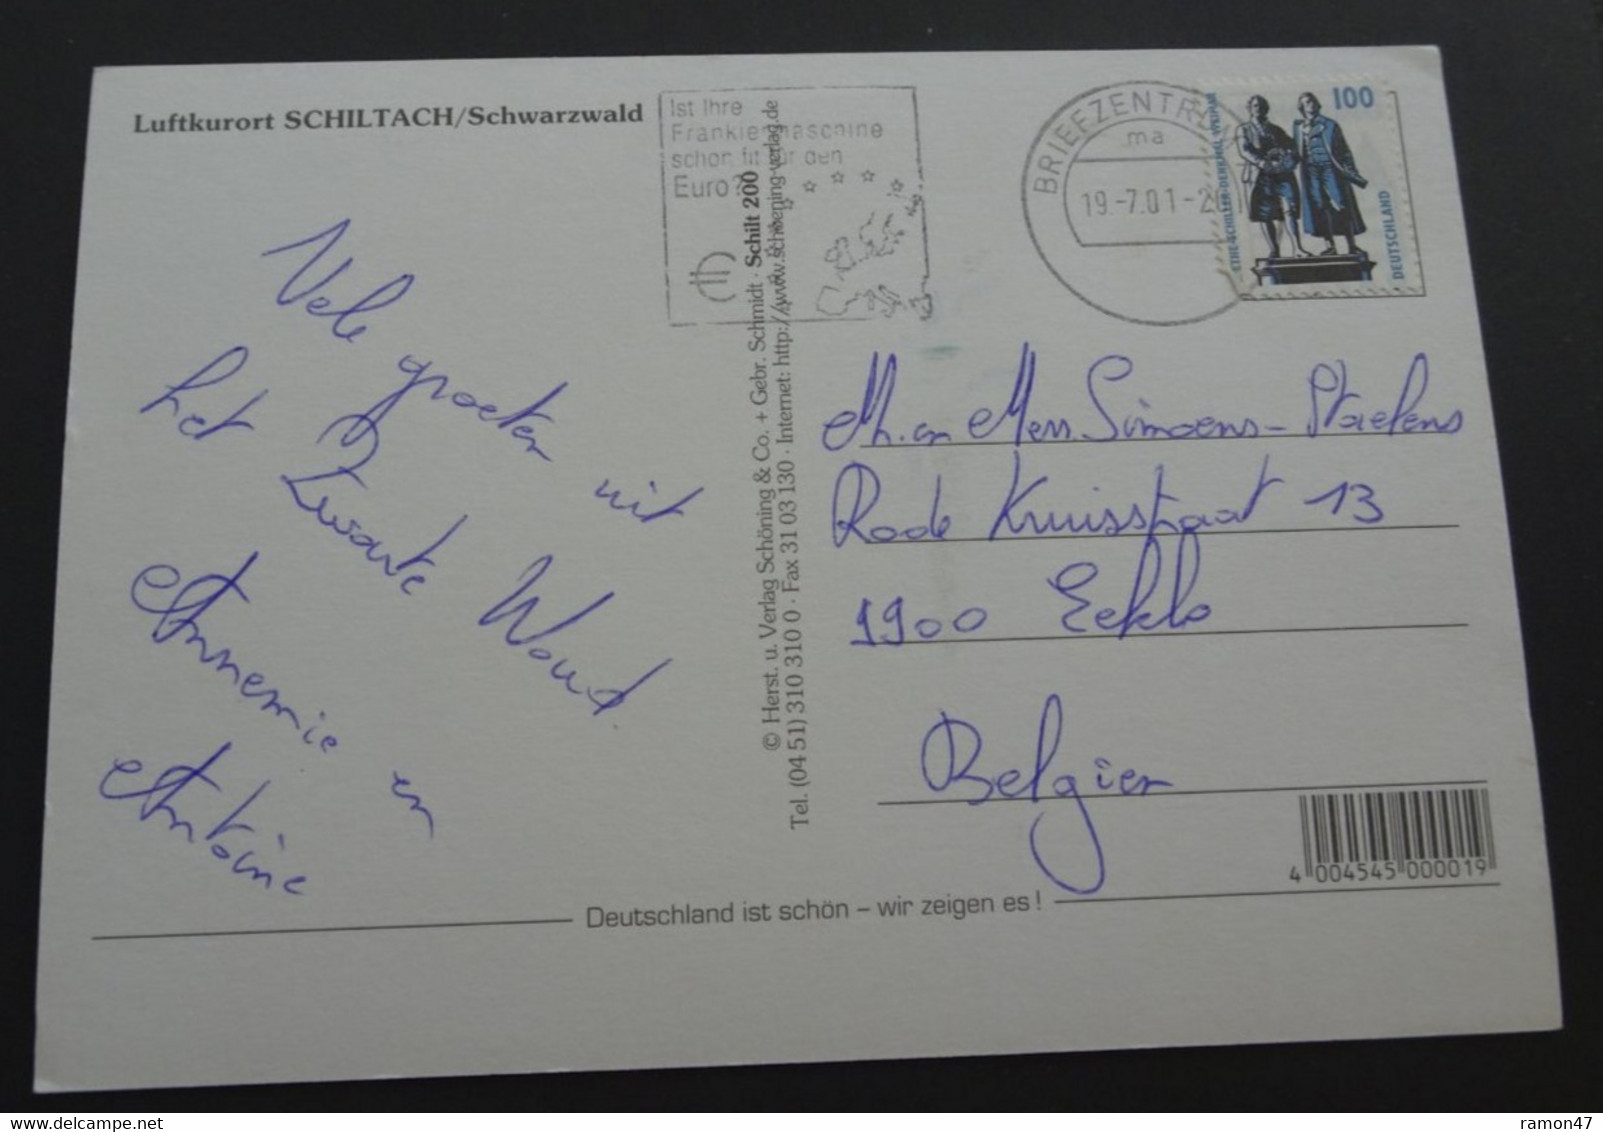 Luftkurort SCHILTACH/Schwarzwald
Ist Ihre
Frankiermaschine
schon fit für den
Euro?
BRIEFZENTR
ma
19.-7.01-2
100
DEUTSCHLAND
Vele groeten uit
het Zwarte Woud.
Annemie en
Antoine
© Herst. u. Verlag Schöning & Co. + Gebr. Schmidt · Schilt 200
Tel. (04 51) 310 310 0 · Fax 31 03 130 · Internet: http://www.schoening-verlag.de
Mh. en Mevr. Simoens-Staelens
Rode Kruisstraat 13
9900 Eeklo
Belgien
4 004545 000019
Deutschland ist schön – wir zeigen es!
ramon47